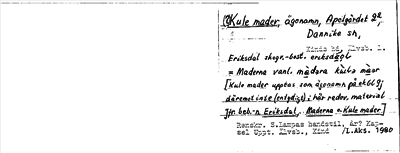 [?Kule mader, ägonamn, Apelgärdet 2²,
Dannike sn,
Kinds hd, Älvsb. l.
Eriksdal skogr.-bost. eriksdɑ̄l
= Maderna vanl. mådəra
[Kule mader upptas som ägonamn på ek 66 9j
däremot inte (entydigt) i här redov. material
Jfr beb.-n Eriksdal, Maderna o. Kule mader]
Renskr. S.Lampas handstil, år? Kap-
sel Uppt. Älvsb., Kind /L.Aks. 1980